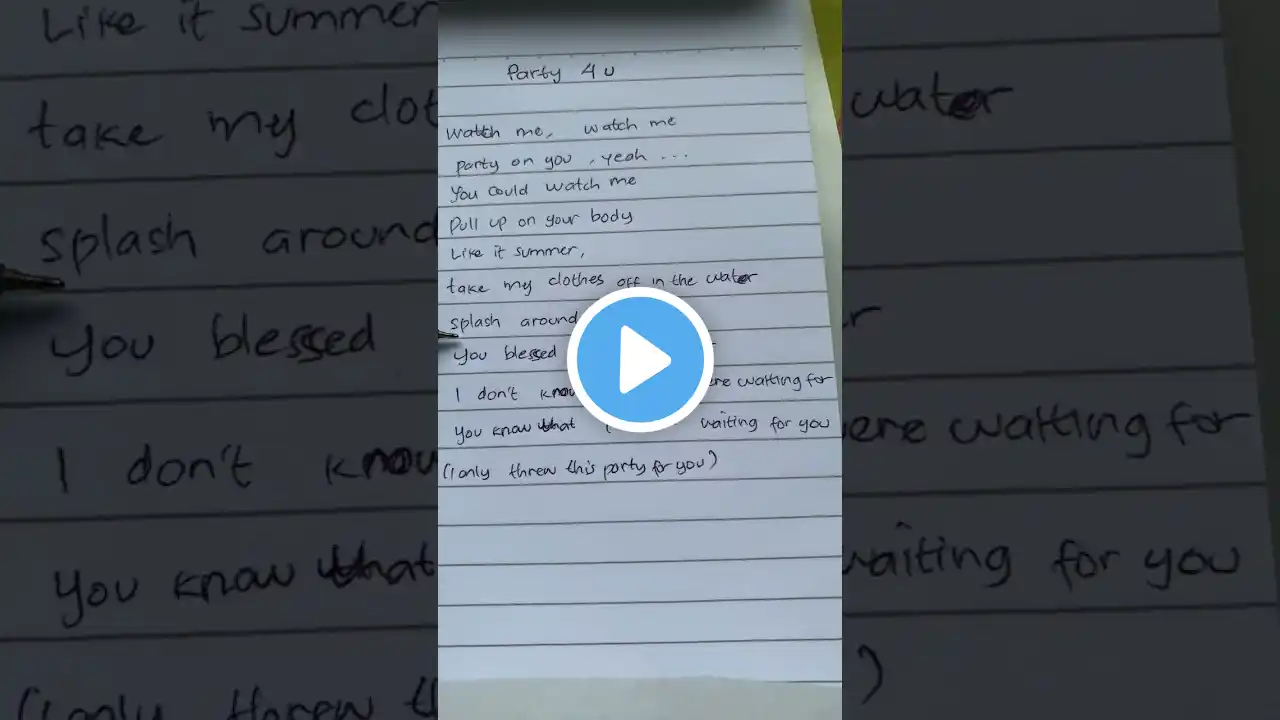 Party 4 u
watch me, watch me
party on you, yeah ...
You could watch me
pull up on your body
Like it summer,
take my clothes off in the water
splash around
you blessed
I don't know were waiting for
you know that I waiting for you
(I only threw this party for you)